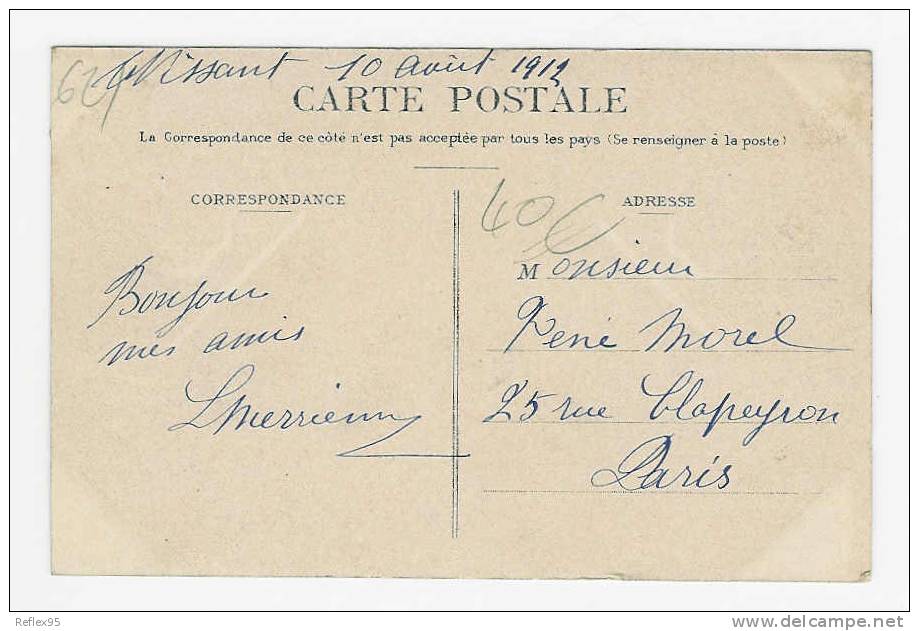 62
Wissant 10 août 1912
CARTE POSTALE
La Correspondance de ce côté n'est pas acceptée par tous les pays (Se renseigner à la poste)
CORRESPONDANCE
Bonjour
mes amis
40
ADRESSE
Monsieur
René Morel
25 rue Clapeyron
Paris
Reflex95
www.delcampe.net